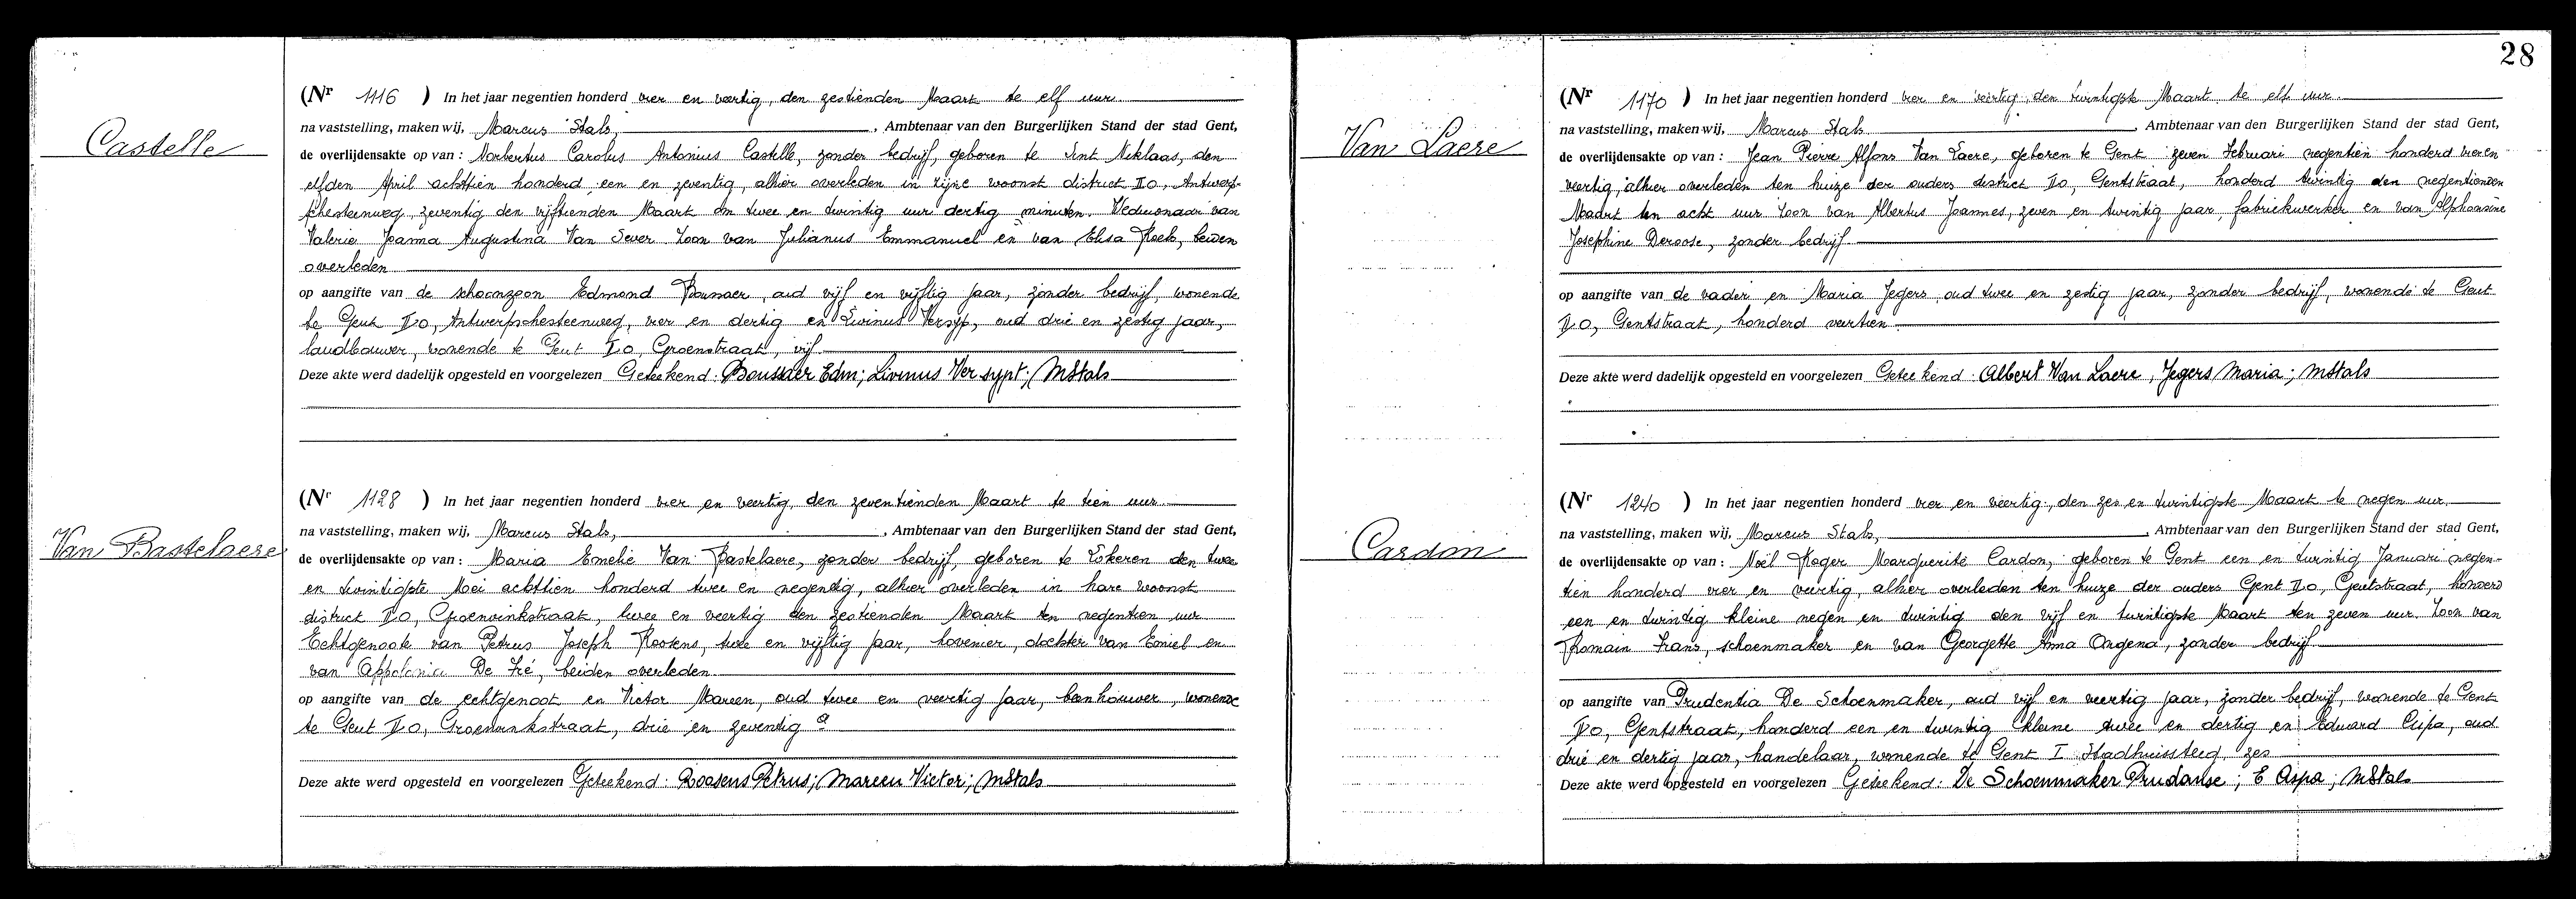 Castelle
(Nr 1116 ) In het jaar negentien honderd vier en veertig, den zestienden Maart te elf uur
na vaststelling, maken wij, Marcus Stals, , Ambtenaar van den Burgerlijken Stand der stad Gent,
de overlijdensakte op van : Norbertus Carolus Antonius Castelle, zonder bedrijf, geboren te Sint Niklaas, den
elfden April achttien honderd een en zeventig, alhier overleden in zijne woonst district Do, Antwerp-
schesteenweg, zeventig den vijftienden Maart om twee en twintig uur dertig minuten. Weduwnaar van
Valerie Joanna Augustina Van Sever Zoon van Julianus Emmanuel en van Elisa Roels, beiden
overleden
op aangifte van de schoonzoon Edmond Boussaer, oud vijf en vijftig jaar, zonder bedrijf, wonende
te Gent Do, Antwerpschesteenweg, vier en dertig en Livinus Versyp, oud drie en zestig jaar,
landbouwer, wonende te Gent Do, Groenstraat, vijf
Deze akte werd dadelijk opgesteld en voorgelezen Geteekend: Boussaer Edm; Livinus Versypt; MStals
Van Bastelaere
(Nr 1128 ) In het jaar negentien honderd vier en veertig, den zeventienden Maart te tien uur
na vaststelling, maken wij, Marcus Stals, , Ambtenaar van den Burgerlijken Stand der stad Gent,
de overlijdensakte op van : Maria Emelie Van Bastelaere, zonder bedrijf, geboren te Lokeren den twee
en twintigste Mei achttien honderd twee en negentig, alhier overleden in hare woonst
district Do, Groenvinkstraat, twee en veertig den zestienden Maart ten negentien uur
Echtgenoote van Petrus Joseph Roosens, twee en vijftig jaar, hovenier, dochter van Emiel en
van Appolonia De Fré, beiden overleden
op aangifte van de echtgenoot en Victor Mareen, oud twee en veertig jaar, beenhouwer, wonende
te Gent Do, Groenvinkstraat, drie en zeventig a
Deze akte werd opgesteld en voorgelezen Geteekend: Roosens Petrus; Mareen Victor; MStals
28
Van Laere
(Nr 1170 ) In het jaar negentien honderd vier en veertig, den twintigste Maart te elf uur
na vaststelling, maken wij, Marcus Stals , Ambtenaar van den Burgerlijken Stand der stad Gent,
de overlijdensakte op van : Jean Pierre Alfons Van Laere, geboren te Gent zeven Februari negentien honderd vier en
veertig, alhier overleden ten huize der ouders district Do, Gentstraat, honderd twintig den negentienden
Maart ten acht uur Zoon van Albertus Joannes, zeven en twintig jaar, fabriekwerker en van Alphonsine
Josephine Deroose, zonder bedrijf
op aangifte van de vader en Maria Jegers, oud twee en zestig jaar, zonder bedrijf, wonende te Gent
Do, Gentstraat, honderd veertien
Deze akte werd dadelijk opgesteld en voorgelezen Geteekend: Albert Van Laere, Jegers Maria; MStals
Cardon
(Nr 1240 ) In het jaar negentien honderd vier en veertig, den zes en twintigste Maart te negen uur
na vaststelling, maken wij, Marcus Stals, , Ambtenaar van den Burgerlijken Stand der stad Gent,
de overlijdensakte op van : Noël Roger Marguerite Cardon, geboren te Gent een en twintig Januari negen-
tien honderd vier en veertig, alhier overleden ten huize der ouders Gent Do, Gentstraat, honderd
een en twintig kleine negen en twintig den vijf en twintigste Maart ten zeven uur. Zoon van
Romain Frans, schoenmaker en van Georgette Anna Ongena, zonder bedrijf
op aangifte van Prudentia De Schoenmaker, oud vijf en veertig jaar, zonder bedrijf, wonende te Gent
Do, Gentstraat, honderd een en twintig kleine twee en dertig en Eduard Cispa, oud
drie en dertig jaar, handelaar, wonende te Gent I Stadhuissteeg, zes
Deze akte werd opgesteld en voorgelezen Geteekend: De Schoenmaker Prudanse; E Cispa; MStals